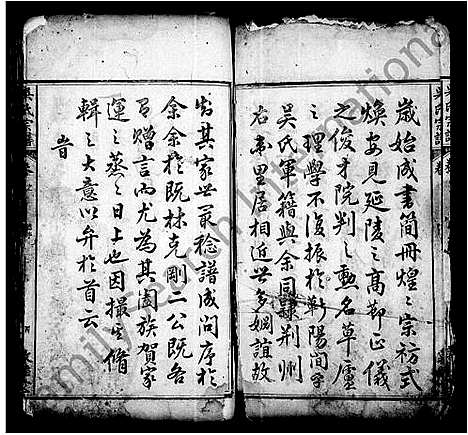 歲始成書簡冊煌〻宗祊式
煥安見延陵之高節正儀
之俊才院判之勳名草廬
之理學不復振於蘄陽間乎
吳氏軍籍與余同隸荊州
右衛里居相近世多姻誼故
於其家世最稔譜成問序於
余余於既林克剛二公既各
有贈言而尤為其闔族賀家
運之蒸〻日上也因撮其脩
輯之大意以弁於首云
旹
吳氏宗譜
卷
Family Search International